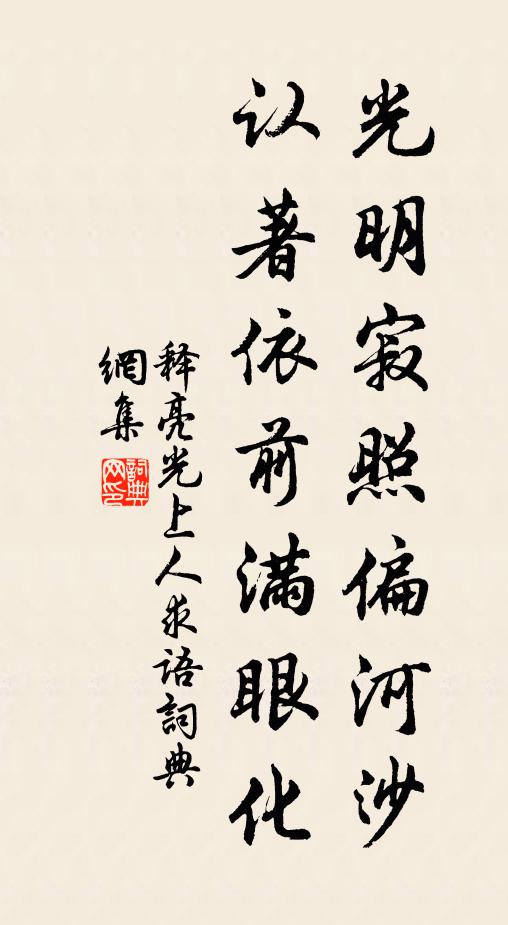 光明寂照偏河沙
认著依前满眼化
释亮光上人求语詞典
網集
詞典網印